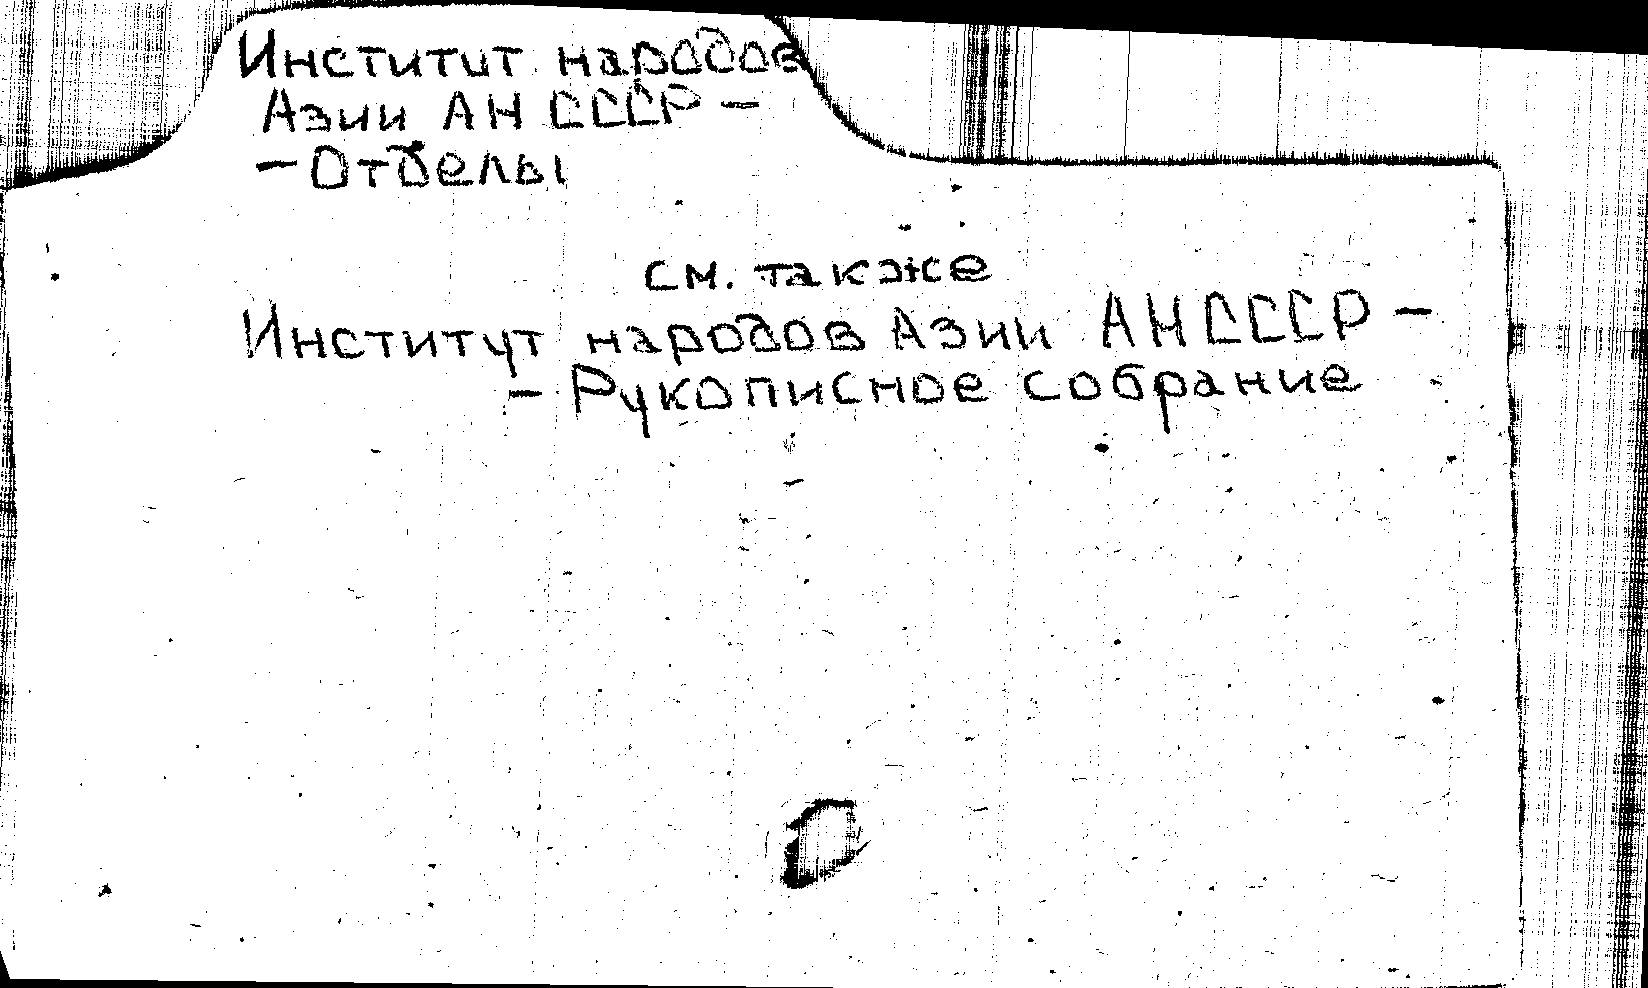 Институт народов
Азии АН СССР –
– Отделы
см. также
Институт народов Азии АН СССР –
– Рукописное собрание